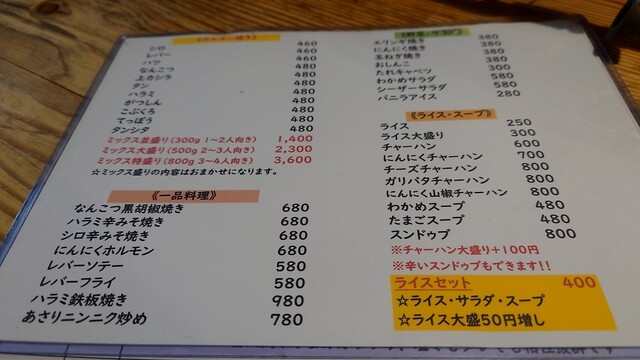 《ホルモン焼き》
シロ 460
レバー 460
ハツ 480
なんこつ 480
上カシラ 480
タン 480
ハラミ 480
がつしん 480
こぶくろ 480
てっぽう 480
タンシタ 480
ミックス並盛り(300g 1～2人向き) 1,400
ミックス大盛り(500g 2～3人向き) 2,300
ミックス特盛り(800g 3～4人向き) 3,600
☆ミックス盛りの内容はおまかせになります。
《一品料理》
なんこつ黒胡椒焼き 680
ハラミ辛みそ焼き 680
シロ辛みそ焼き 680
にんにくホルモン 680
レバーソテー 580
レバーフライ 580
ハラミ鉄板焼き 980
あさりニンニク炒め 780
《野菜・サラダ》
エリンギ焼き 380
にんにく焼き 380
玉ねぎ焼き 380
おしんこ 380
たれキャベツ 300
わかめサラダ 580
シーザーサラダ 580
バニラアイス 280
《ライス・スープ》
ライス 250
ライス大盛り 300
チャーハン 600
にんにくチャーハン 700
チーズチャーハン 800
ガリバタチャーハン 800
にんにく山椒チャーハン 800
わかめスープ 480
たまごスープ 480
スンドゥブ 800
※チャーハン大盛り+100円
※辛いスンドゥブもできます!!
ライスセット 400
☆ライス・サラダ・スープ
☆ライス大盛50円増し